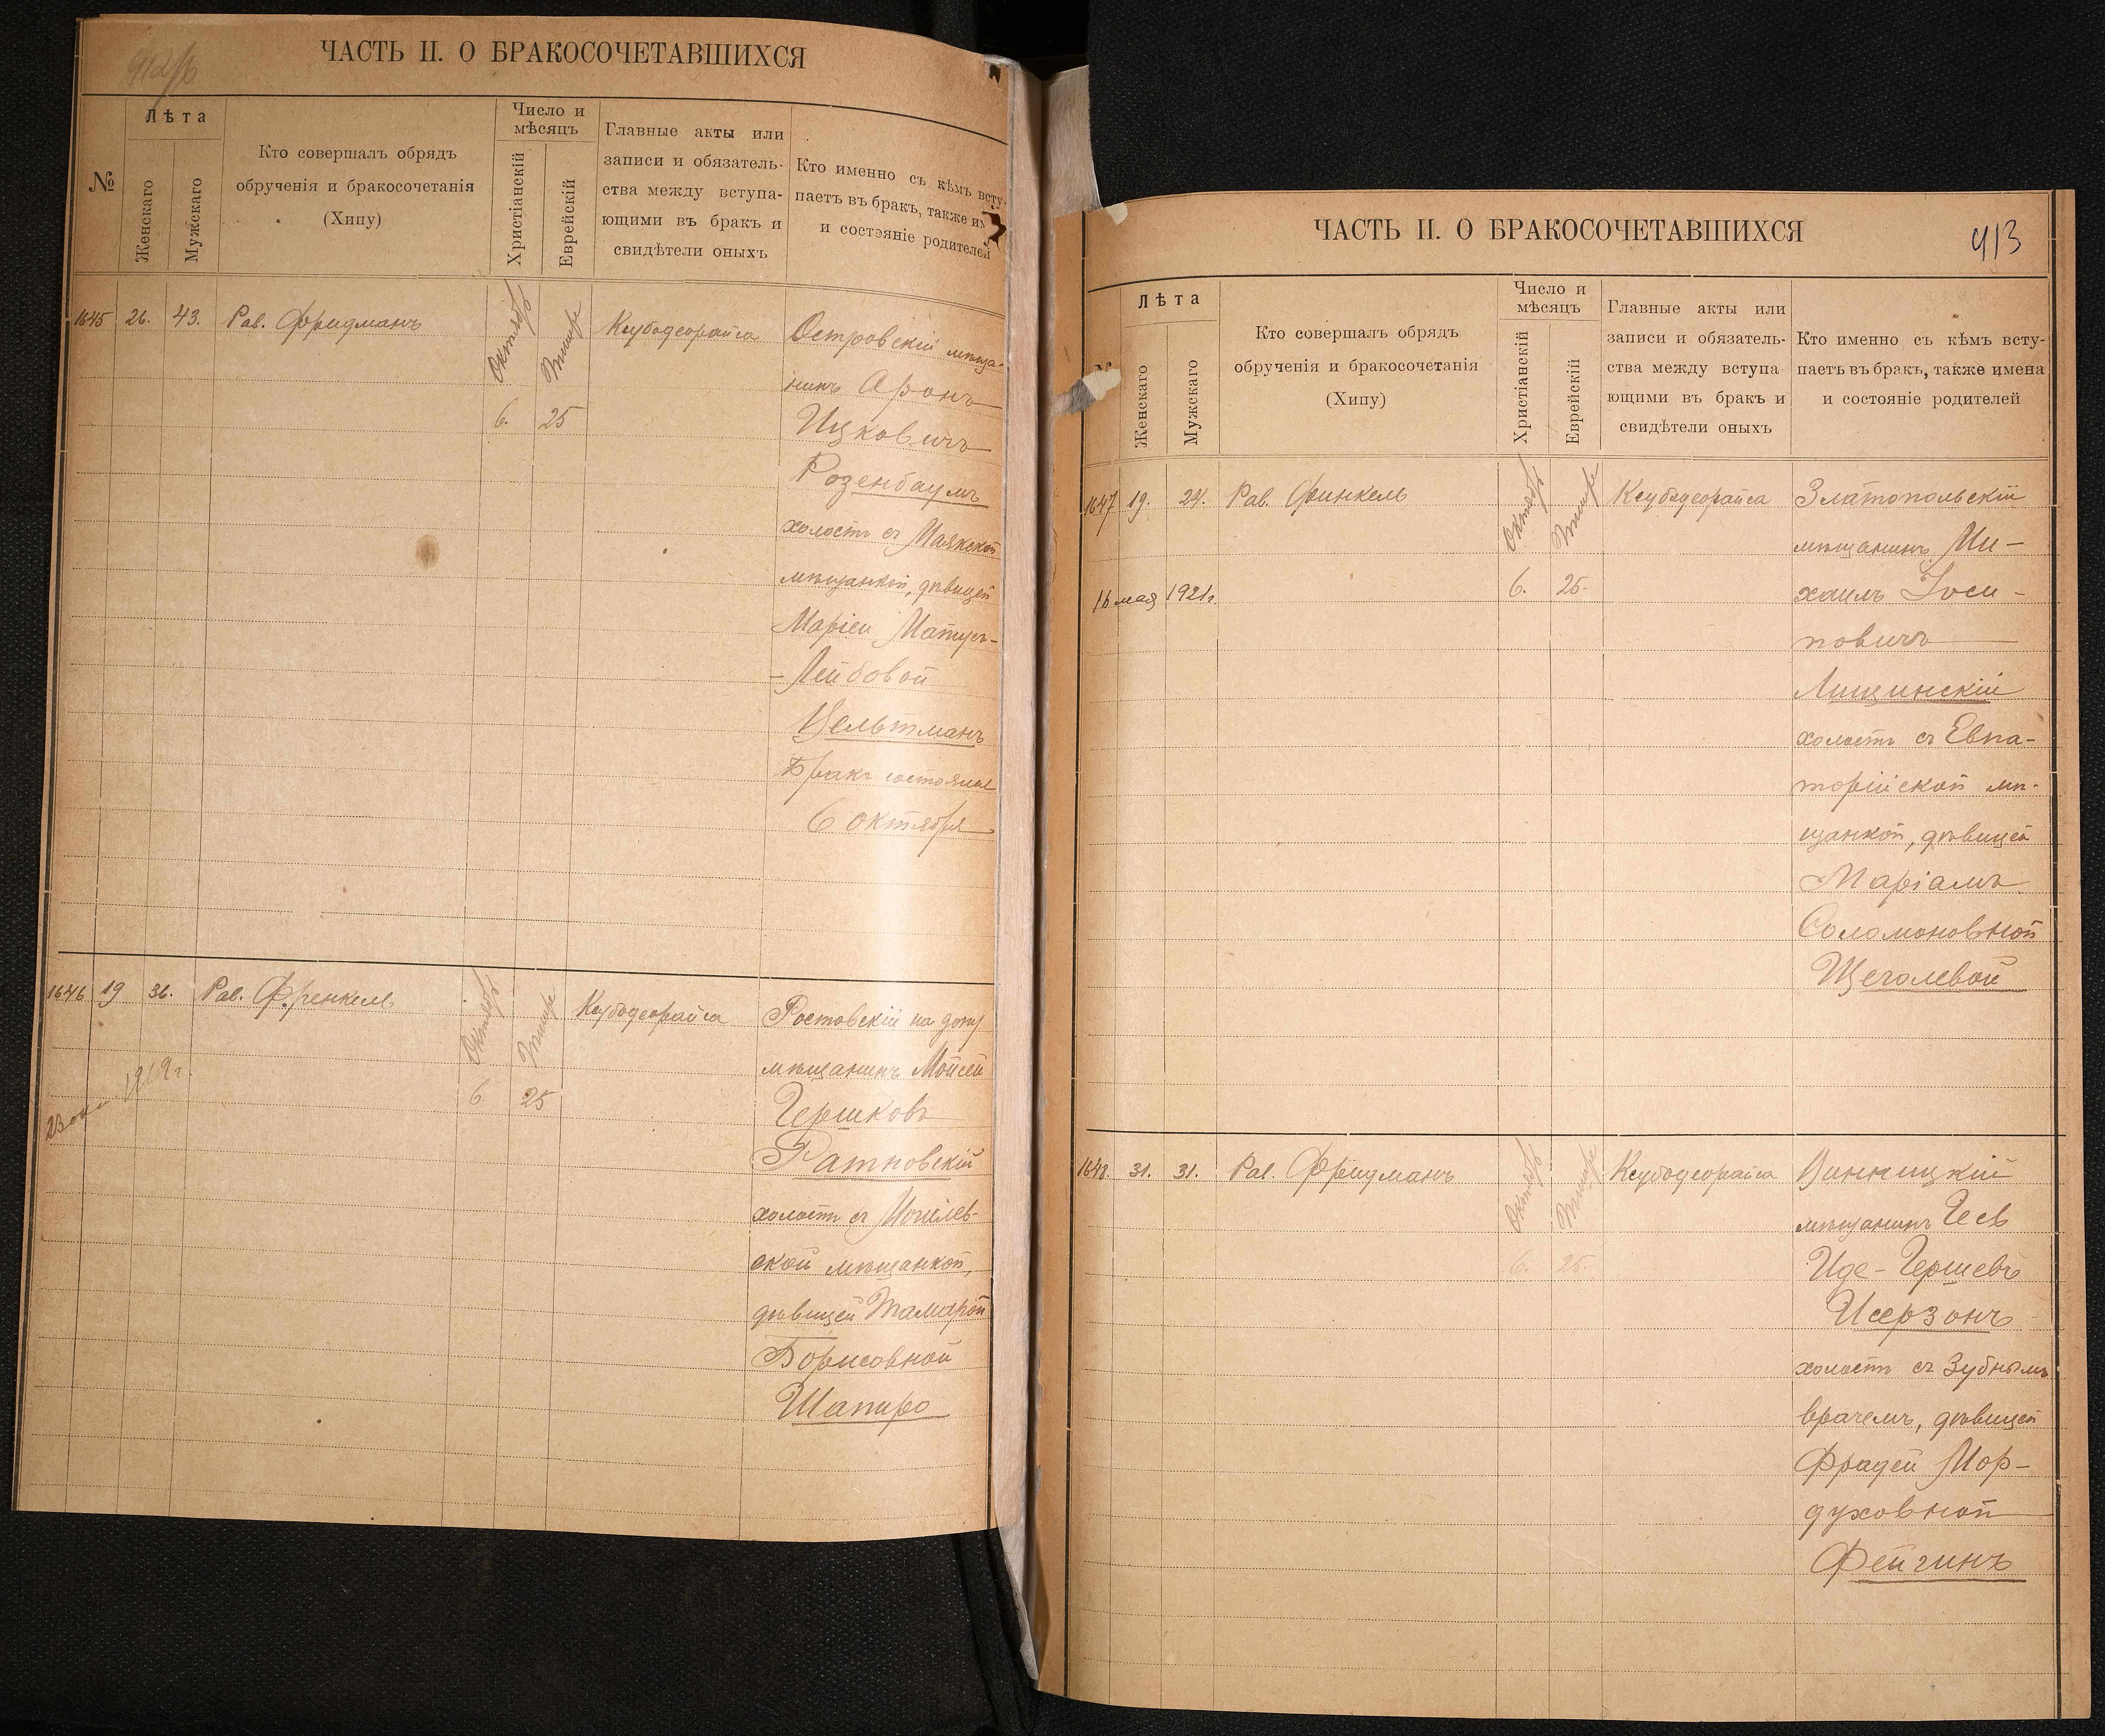 912/б
ЧАСТЬ II. О БРАКОСОЧЕТАВШИХСЯ
№
Лѣта
Женскаго
Мужскаго
Кто совершалъ обрядъ
обрученія и бракосочетанія
(Хипу)
Число и
мѣсяцъ
Христіанскій
Еврейскій
Главные акты или
записи и обязатель-
ства между вступа-
ющими въ бракъ и
свидѣтели оныхъ
Кто именно съ кѣмъ всту-
паетъ въ бракъ, также им
и состояніе родителей
1645 26. 43. Рав. Фридманъ Октябрь Тишре Ксубодеорайса Островскій мѣща-
нинъ Аронъ
6. 25 Ицковичъ
Розенбаумъ
холостъ съ Маякской
мѣщанкой, дѣвицей
Маріей Матусъ-
- Лейбовой
Цельтманъ
Бракъ состоялся
6 октября
1646 19 36. Рав. Френкель Октябрь Тишре Ксубодеорайса Ростовскій на дону
мѣщанинъ Мойсей
23 1919 г. 6 25 Гершковъ
Ратновскій
холостъ съ Могилев-
ской мѣщанкой,
дѣвицей Тамарой
Борисовной
Шапиро
ЧАСТЬ II. О БРАКОСОЧЕТАВШИХСЯ
413
Лѣта
Женскаго
Мужскаго
Кто совершалъ обрядъ
обрученія и бракосочетанія
(Хипу)
Число и
мѣсяцъ
Христіанскій
Еврейскій
Главные акты или
записи и обязатель-
ства между вступа
ющими въ бракъ и
свидѣтели оныхъ
Кто именно съ кѣмъ всту-
паетъ въ бракъ, также имена
и состояніе родителей
1647 19. 24. Рав. Финкель Октябрь Тишре Ксубодеорайса Златопольскій
мѣщанинъ Ми-
16 мая 1921 г. 6. 25. хаилъ Іоси-
повичъ
Лищинскій
холостъ съ Евпа-
торійской мѣ-
щанкой, дѣвицей
Маріамъ
Соломоновной
Щеголевой
1648. 31. 31. Рав. Фридманъ Октябрь Тишре Ксубодеорайса Винницкій
мѣщанинъ
6. 25. Иде-Гершевъ
Исерзонъ
холостъ съ Зубнымъ
врачемъ, дѣвицей
Фрадей Мор-
духовной
Фейгинъ